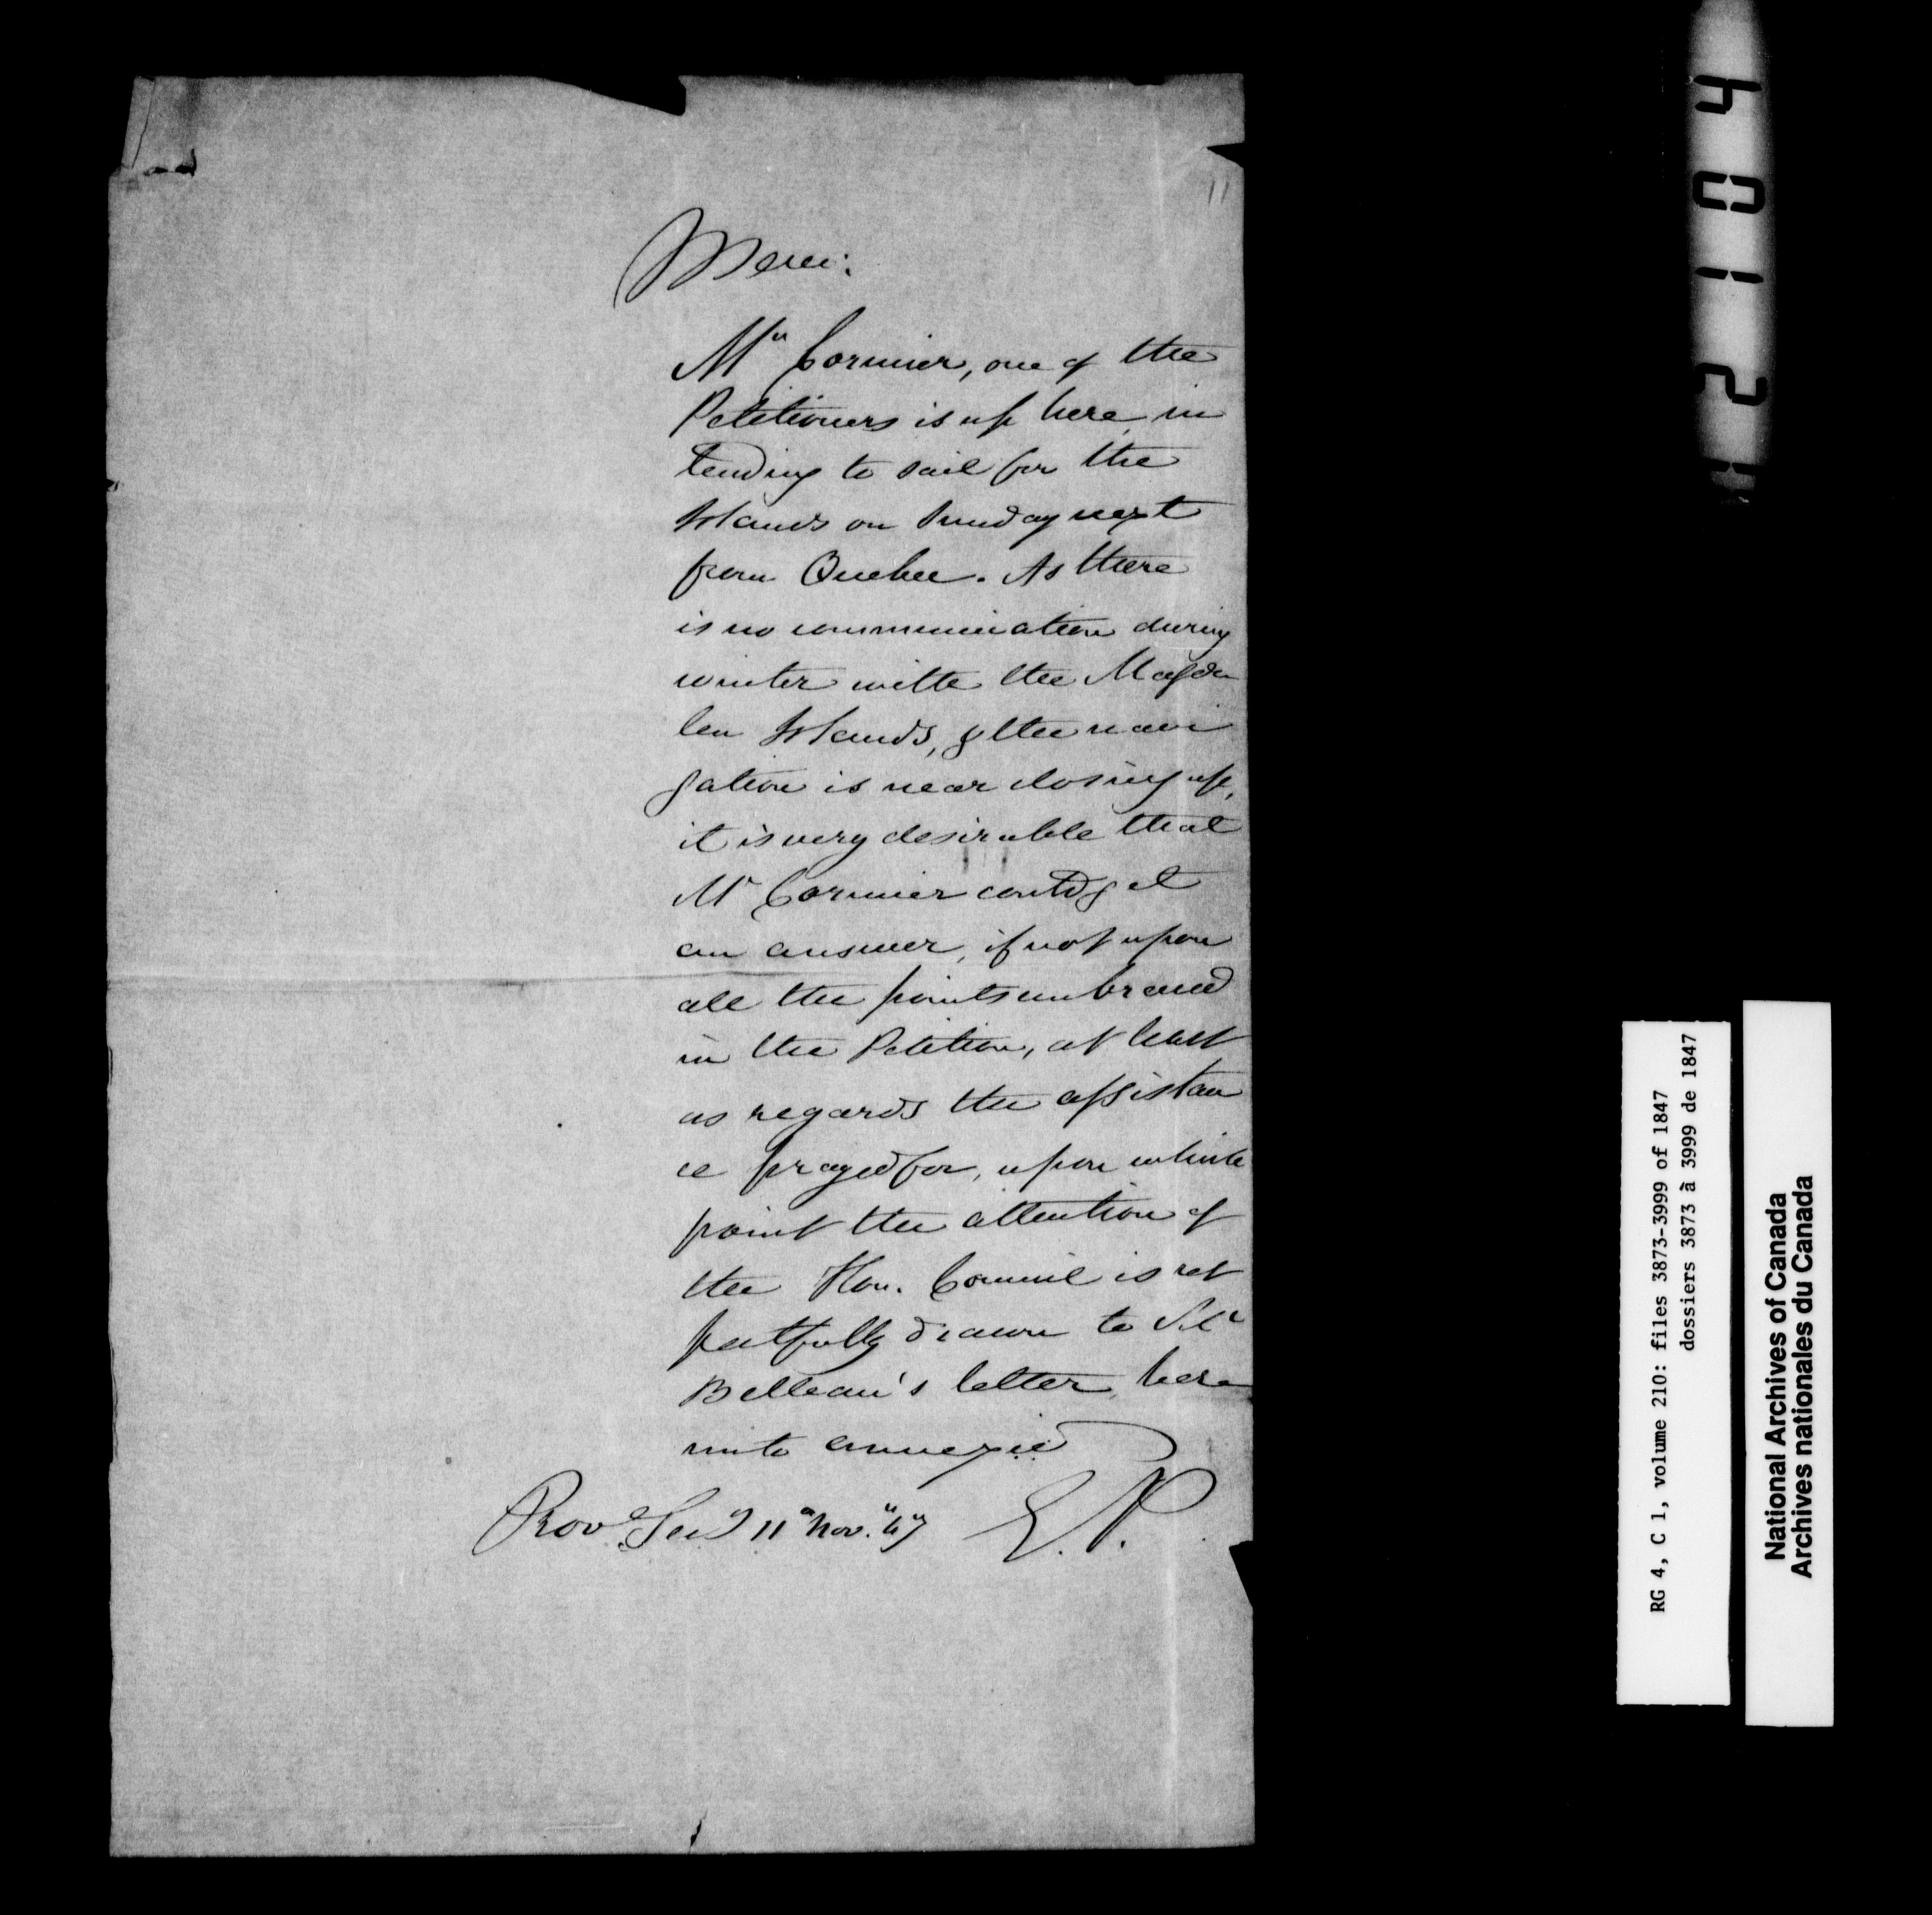 11
Mem:
Mr Cormier, one of the
Petitioners is up here in
tending to sail for the
Islands on Sunday next
from Quebec. As there
is no communication during
winter with the Magda
len Islands, & the navi
gation is near closing up,
it is very desirable that
Mr Cormier could get
an answer, if not upon
all the points embraced
in the Petition, at least
as regards the assistan
ce prayed for, upon which
point the attention of
the Hon. Council is res
pectfully drawn to
Belleau's letter, here
unto annexed
Prov. Sec. 11 Nov. "47 E. P.
4012
RG 4, C 1, volume 210: files 3873-3999 of 1847
dossiers 3873 à 3999 de 1847
National Archives of Canada
Archives nationales du Canada